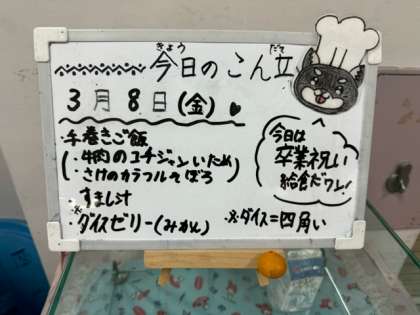 今日のこん立
きょう だて
3月8日(金)
・手巻きご飯
(・牛肉のコチジャンいため
・さけのカラフルそぼろ)
・すまし汁
※ダイスゼリー(みかん)
※ダイス=四角い
今日は
卒業祝い
給食だワン!